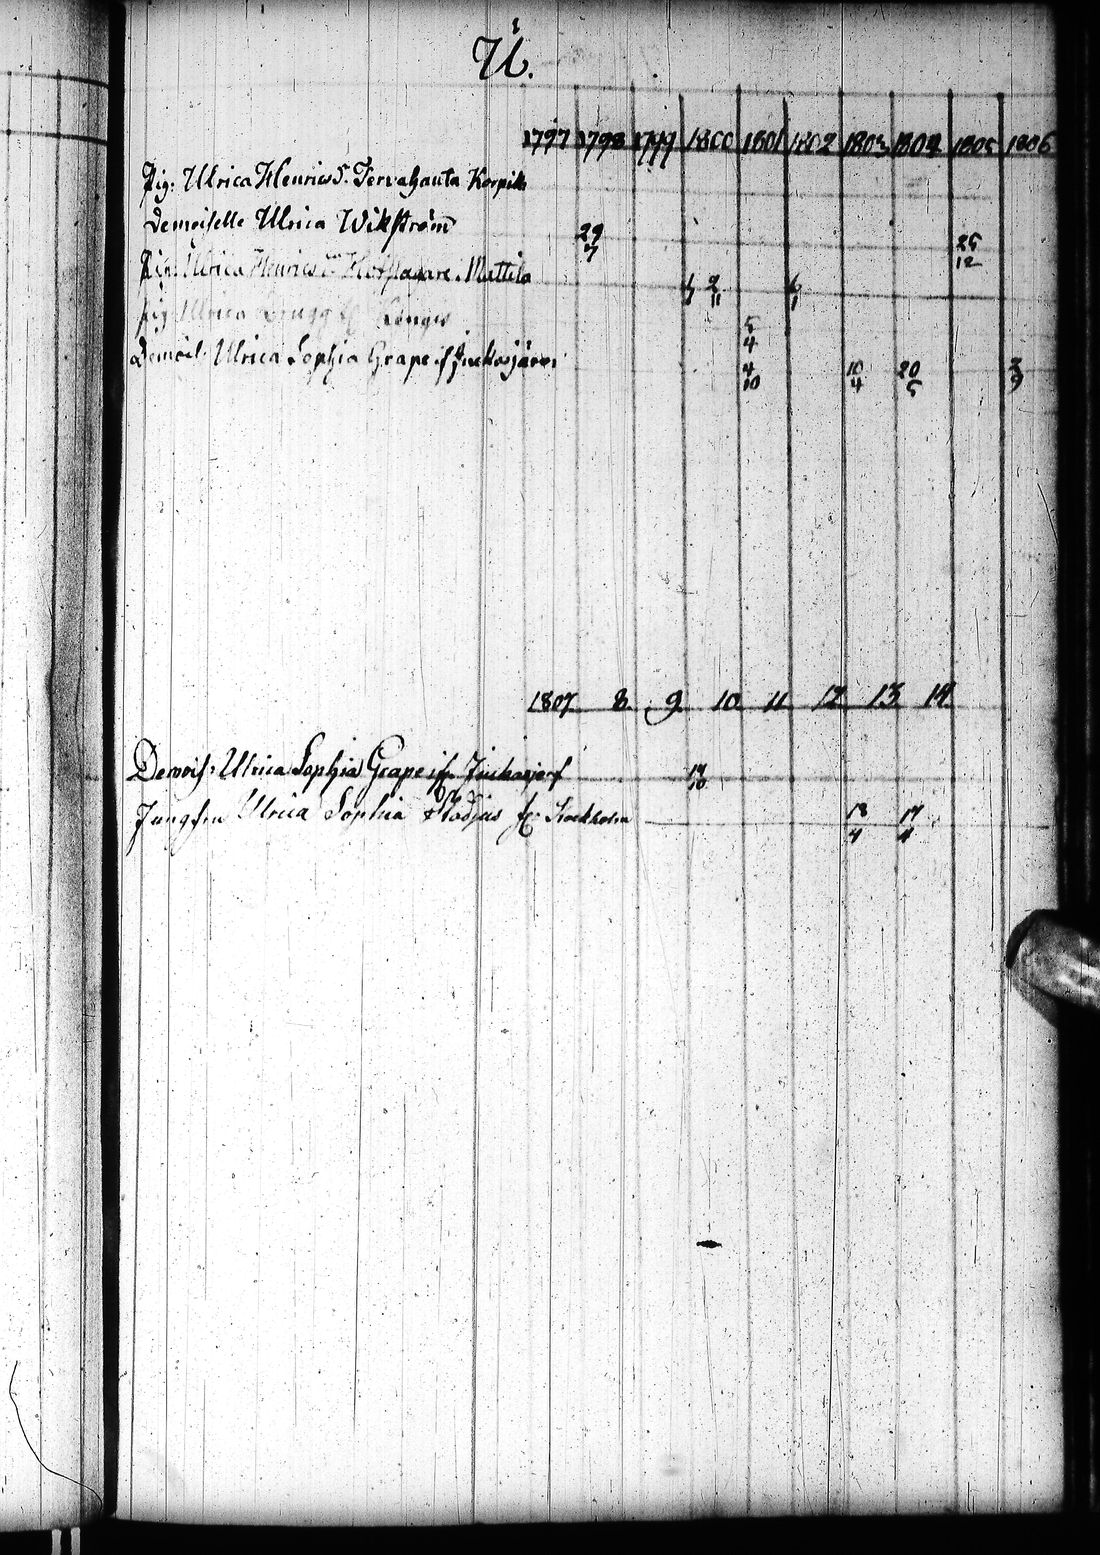 U.
1797 1798 1799 1800 1801 1802 1803 1804 1805 1806
Pig: Ulrica Henricsd. Tervahauta Korpik
Demoiselle Ulrica Wikström 29/7 25/12
Pig: Ulrica Henricsdr Mattila 2/11
Pig Ulrica fr Kengis 5/4
Demois: Ulrica Sophia Grape ifr Juckasjärvi 4/10 10/4 20/5 3/9
1807 8 9 10 11 12 13 14
Demois: Ulrica Sophia Grape ifr Juckasjerf 14/10
Jungfru Ulrica Sophia fr Stockholm 18/4 17/4